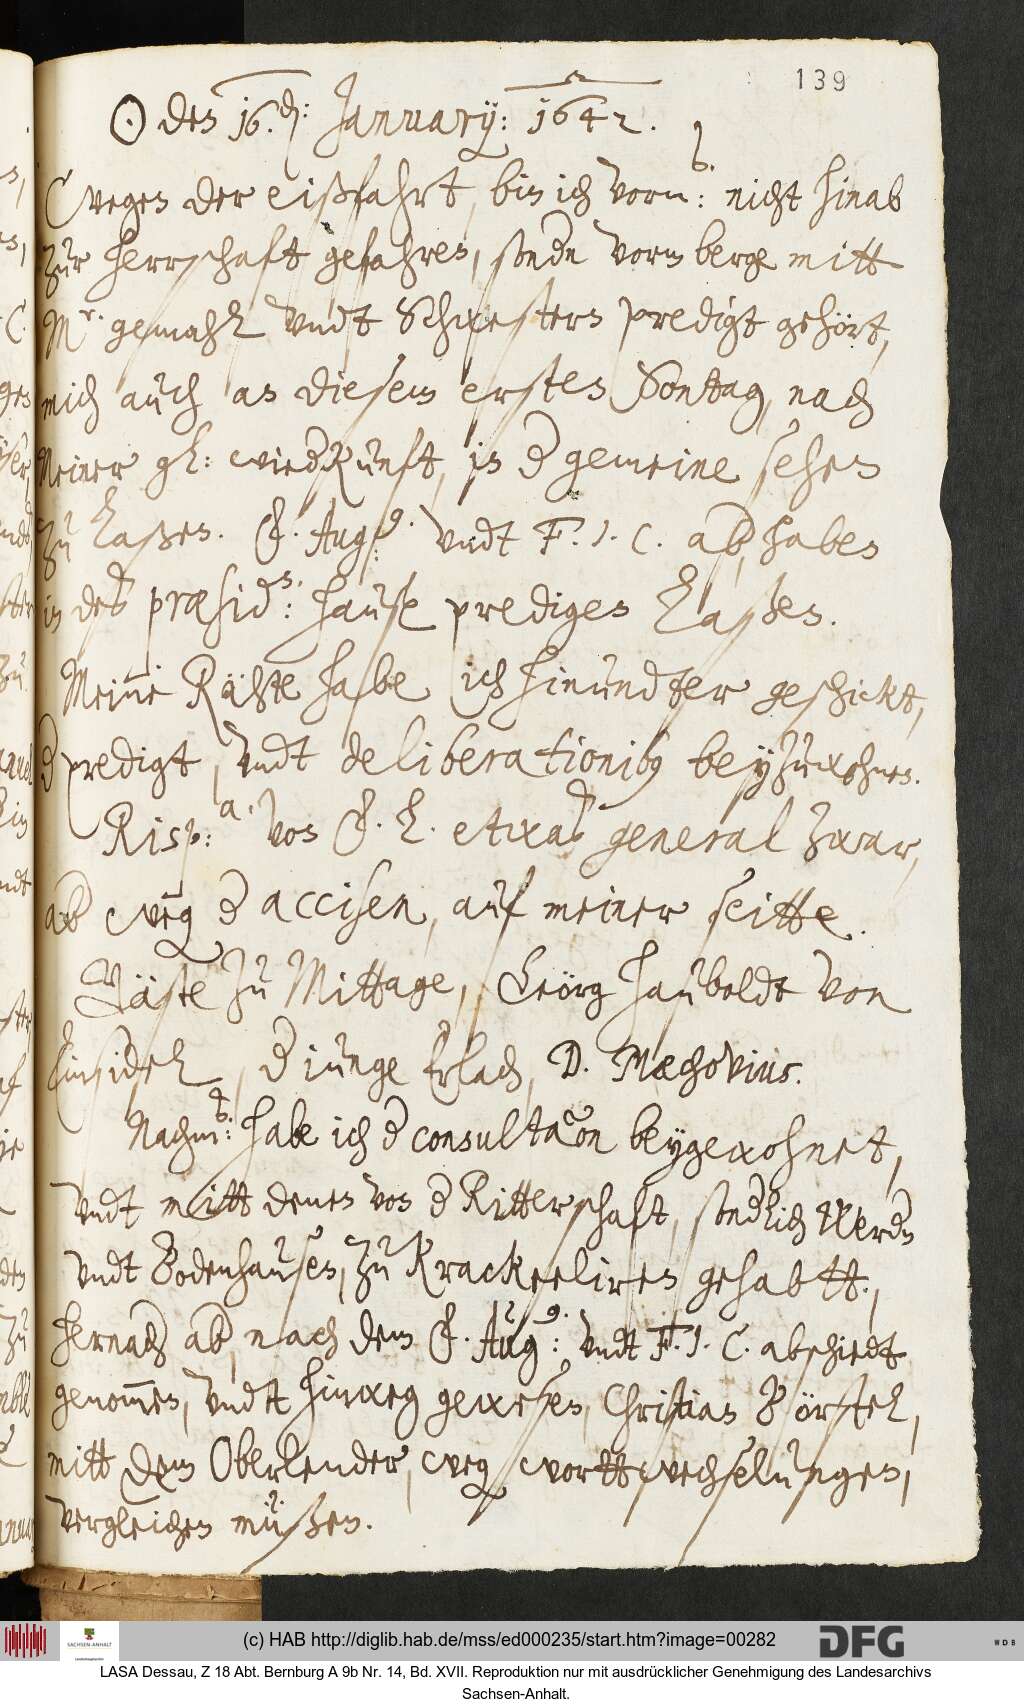 139
☉ den 16.d: January: 1642.
Wegen der eißfahrt, bin ich vorm: nicht hinab
zur herrschaft gefahren, sondn vorm berge mitt
Mr. gemahl vndt Schwestern predigt gehört,
mich auch an diesem ersten Sontag, nach
Meiner gl: wiedkunft, in d gemeine sehen
zu laßen. F. Aug9: vndt F. J. C. ab, haben
in des præsids: hause predigen laßen.
Meine Rähte habe ich hinundter geschickt,
d predigt, vndt deliberationibus beyzuwohnen.
Risp:a. von F. L. etwas general zwar,
ab weg d accisen, auf meiner seitte.
Gäste zu Mittage, Geörg hauboldt von
Einsidel, d iunge Erlach, D. Mechovius.
Nachm: habe ich d consultaon beygewohnet,
vndt mitt denen von d Ritterschaft, sondlich Werdn
vndt Bodenhausen, zu Krackeeliren gehabtt,
hernach ab, nach dem F. Aug9: vndt F. J. C. abschiedt
genommen, vndt hinweg gewesen, Christian Börstel,
mitt dem Oberlender, weg wortt wechselungen,
vergleichen müßen.
(c) HAB http://diglib.hab.de/mss/ed000235/start.htm?image=00282
SACHSEN-ANHALT
DFG
WDB
LASA Dessau, Z 18 Abt. Bernburg A 9b Nr. 14, Bd. XVII. Reproduktion nur mit ausdrücklicher Genehmigung des Landesarchivs
Sachsen-Anhalt.